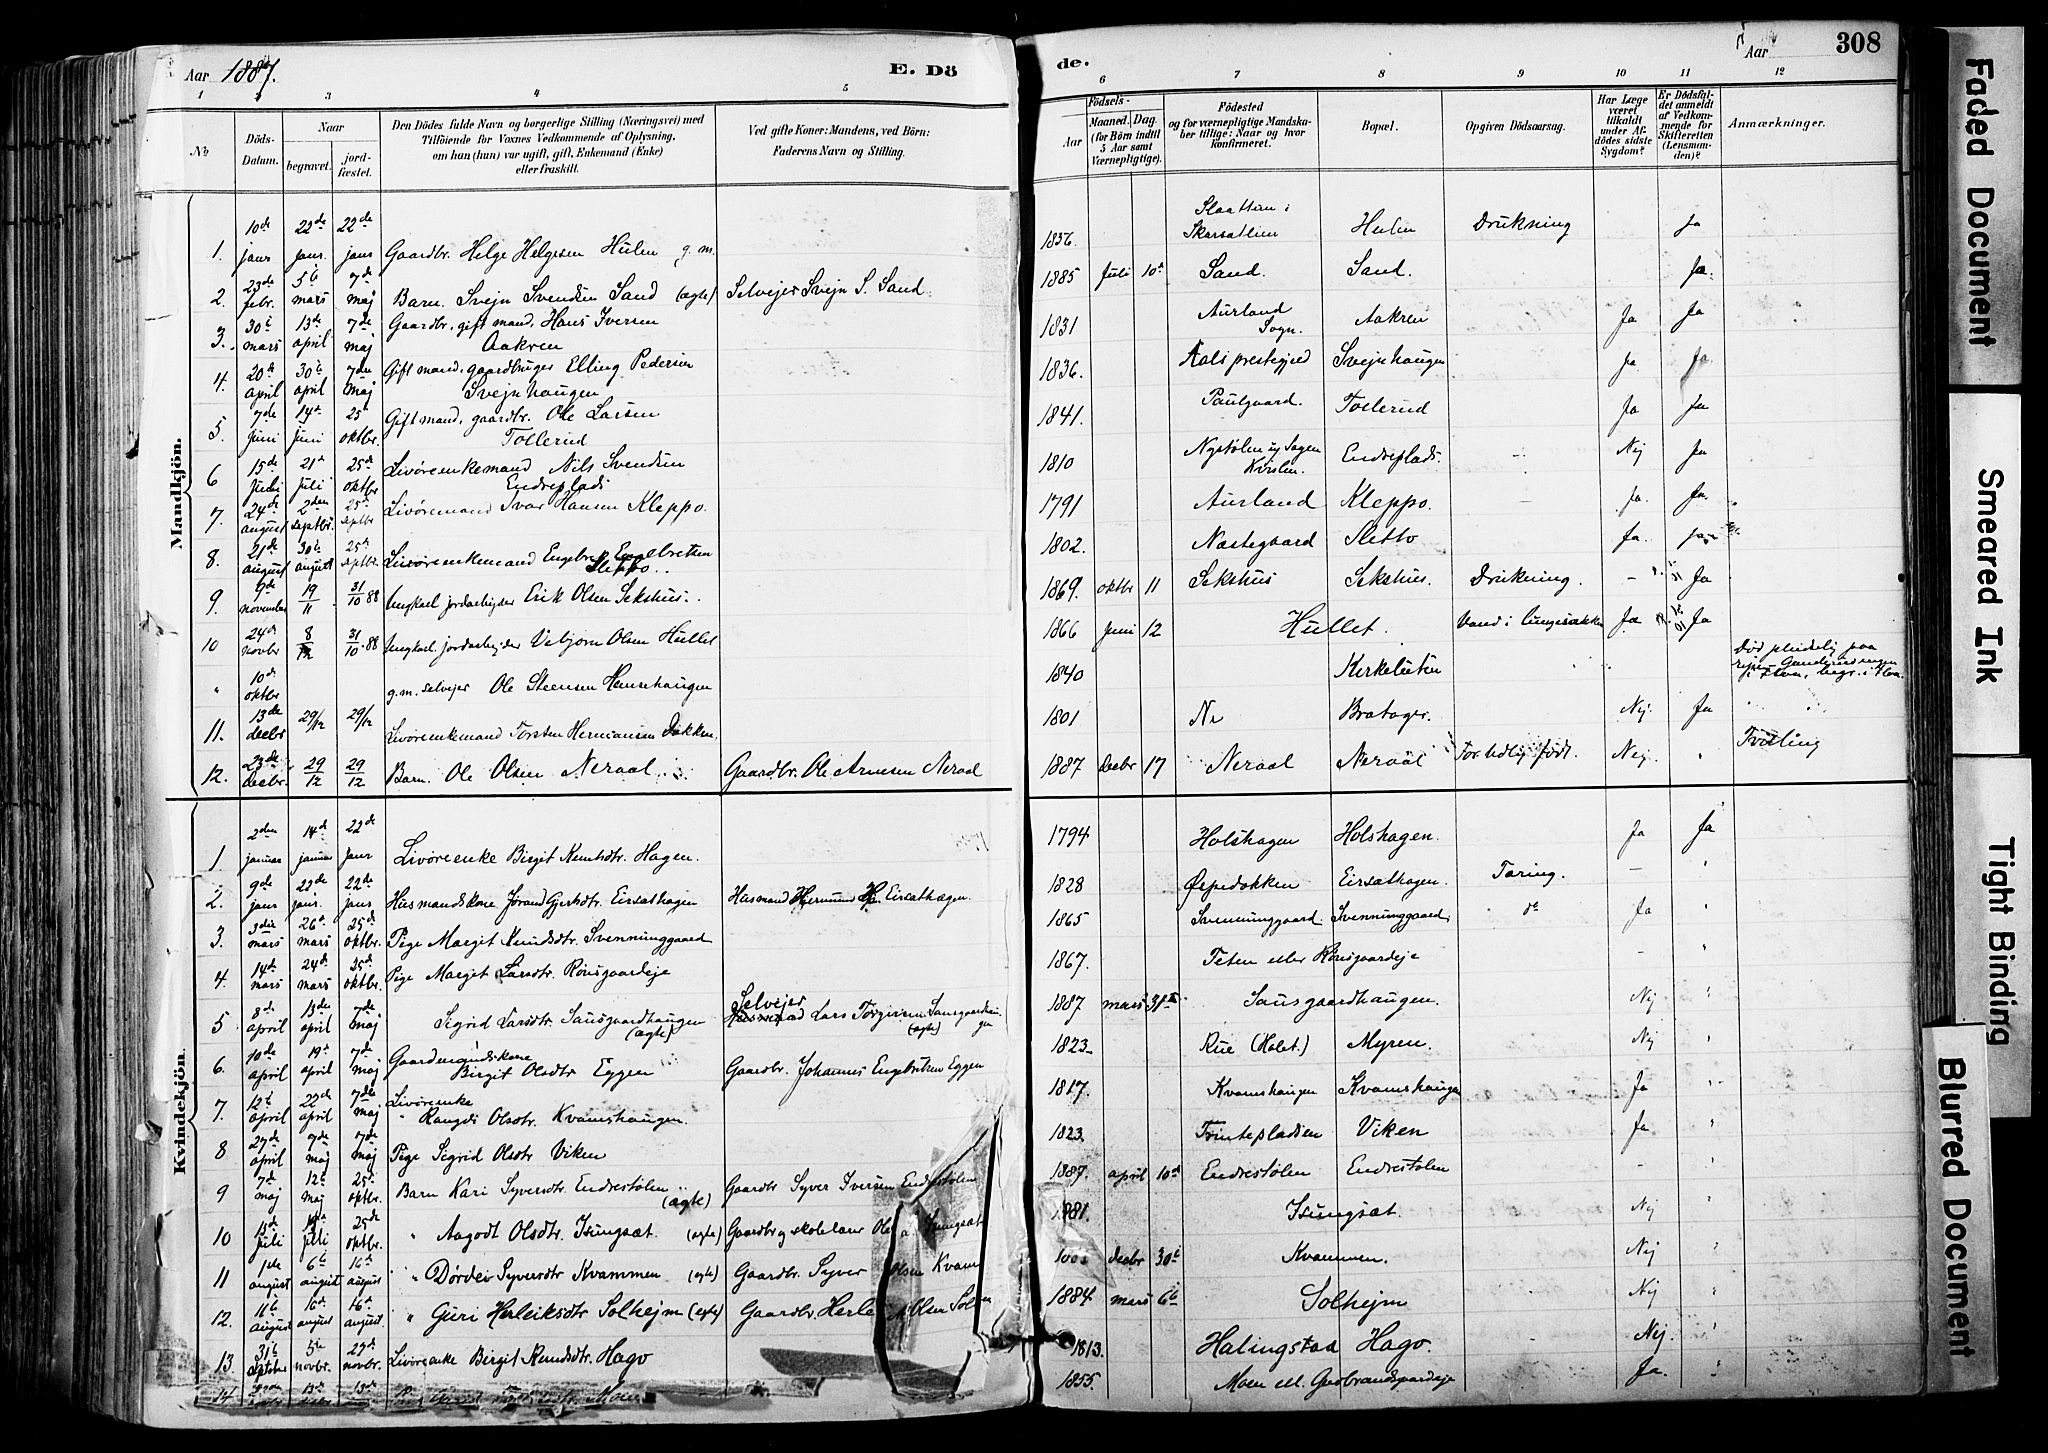 Aar 1887.
E. Dö
1 2 3 4 5
№
Döds-
Datum.
Naar
begravet.
jord-
fæstet.
Den Dödes fulde Navn og borgerlige Stilling (Næringsvei) med
Tilföiende for Voxnes Vedkommende af Oplysning,
om han (hun) var ugift, gift, Enkemand (Enke)
eller fraskilt.
Ved gifte Koner: Mandens, ved Börn:
Faderens Navn og Stilling.
Mandkjön.
10de 22de 22de
1. janr janr. janr Gaardbr. Helge Helgesen Hulen g. m.
23de 5te 7de
2. febr. mars maj Barn. Svejn Svendsen Sand (ægte) Selvejer Svejn S. Sand
30te 13de 7de Gaardbr. gift mand, Hans Iversen
3. mars april maj Aakren
20de 30te 7de Gift mand, gaardbruger Elling Pedersen
4. april april maj Svejnhaugen
7de 14de 25de Gift mand, gaardbr. Ole Larsen
5. juni juni oktbr. Tollerud
15de 21de 25de Livøreenkemand Nils Svendsen
6 juli juli oktbr Endreplads
24de 2den 25de
7. august septbr. septbr Livøremand Ivar Hansen Kleppo.
21de 30te 25de
8. august august septbr Livøreenkemand Engebret Engebretsen
9de 19 31
9. november 11 10 88 Ungkarl jordarbejder Erik Olsen Sekshus.
24de 8 31
10 novbr 12 10 88 Ungkarl. jordarbejder Vebjørn Olsen Hullet
10de
" oktbr g. m. selvejer Ole Steensen Hemsehaugen
13de 29/12 29/12
11. decbr Livøreenkemand Torsten Hermansen Dokken.
23de 29 29
12. decbr. 12 12 Barn. Ole Olsen Neraal Gaardbr. Ole Arnesen Neraal
Kvindekjön.
2den 14de 22de
1. januar januar janr Livøreenke Birgit Knudsdtr. Hagen.
9de 22de 22de
2. janr janr. janr Husmandskone Jørand Gjerhdtr. Eirsæthagen Husmand Eirsæthagen.
3die 26de 25de
3. mars mars oktbr. Pige Margit Knudsdtr. Svenninggaard
14de 24de 25de
4. mars mars oktbr. Pige Margit Larsdtr. Rønsgaardeje
8de 13de 7de Selvejer
5 april april maj Sigrid Larsdtr. Sausgaardhaugen (ægte) Husmand Lars Torgersen Sausgaardhaugen (ægte)
10de 19de 7de Gaardmandskone
6. april april maj Birgit Olsdtr Eggen Gaardbr. Johannes Engebretsen Eggen
12te 22de 7de Livøreenke
7. april april maj " Rangdi Olsdtr. Kvamshaugen.
27de 7de 7de
8 april maj maj Pige Sigrid Olsdtr Viken
7de 12te 25de
9 maj maj oktbr. Barn Kari Syversdtr. Endrestølen (ægte) Gaardbr Syver Iversen Endrestølen
13de 25de
10 juli juli oktbr. " Aagodt Olsdtr. Isungsæt. (ægte) Gaardbr og skolelærer Ole Isungsæt
1ste 6te 16de
11 august august august " Dørdei Syversdtr Kvammen (ægte) Gaardbr. Syver Olsen Kvam
11te 16de 16de
12. august august august. " Guri Herleiksdtr. Solhejm (ægte) Gaardbr. Olsen
31te 5te 27de
13. oktober novbr. novbr. Livøreenke Birgit Knudsdtr. Hago
14 13de 13de Moen
de. Aar 308
6 7 8 9 10 11 12
Födsels-
Aar
Maaned. Dag.
(for Börn indtil
5 Aar samt
Værnepligtige).
Födested
og for værnepligtige Mandska-
ber tillige: Naar og hvor
konfirmeret.
Bopæl.
Opgiven Dödsaarsag.
Har Læge
været
tilkaldt
under Af-
dödes sidste
Sygdom?
Er Dödsfal-
det anmeldt
af Vedkom-
mende for
Skifteretten
(Lensman-
den)?
Anmærkninger.
Slaatten i
1836. Skursætlien Hulen Drukning Ja
1885 Juli 10de Sand. Sand. Ja.
1831 Aurland Sogn. Aakren Ja Ja
1836. Aals prestegjeld Svejnhaugen Ja. Ja
1841. Paulgaard. Tollerud Ja Ja
1810 Nystølen Endreplads. Nej Ja
1791 Aurland Kleppo. Ja. Ja.
1802. Nestegaard Sletto Ja.
1869. oktbr 11 Sekshus Sekshus. Drukning. - Ja
1866 Juni 12 Hullet. Vand i lungesækken Ja Ja
1840 Kirkelieten Død pludselig paa
1801 Ne Bratager. Nej. Ja
1887 Decbr 17 Neraal Neraal For tidlig født. Nej. " Tvilling
1794 Holshagen Holshagen. Ja Ja
1828 Øvpedokken Eirsæthagen. Tæring. - "
1865 Svenninggaard Svenninggaard do Ja "
1867. Teten eller Rønsgaardeje - "
1887 mars 31te Sausgaardhaugen. Nej "
1823 Rue (Holet.) Myren. Nej "
1817. Kvamshaugen Kvamshaugen Ja "
1823. Trintepladsen Viken Ja "
1887. april 10de Endrestølen Endrestølen - "
1881. Isungsæt. Nej "
decbr 30te Kvammen. Nej "
1884. mars 6te Solhejm Nej "
1813. Halingstad Hago. Nej. "
1855. Moen ell. Gudbrandsgardeje Ja. "
Faded Document
Smeared Ink
Tight Binding
Blurred Document